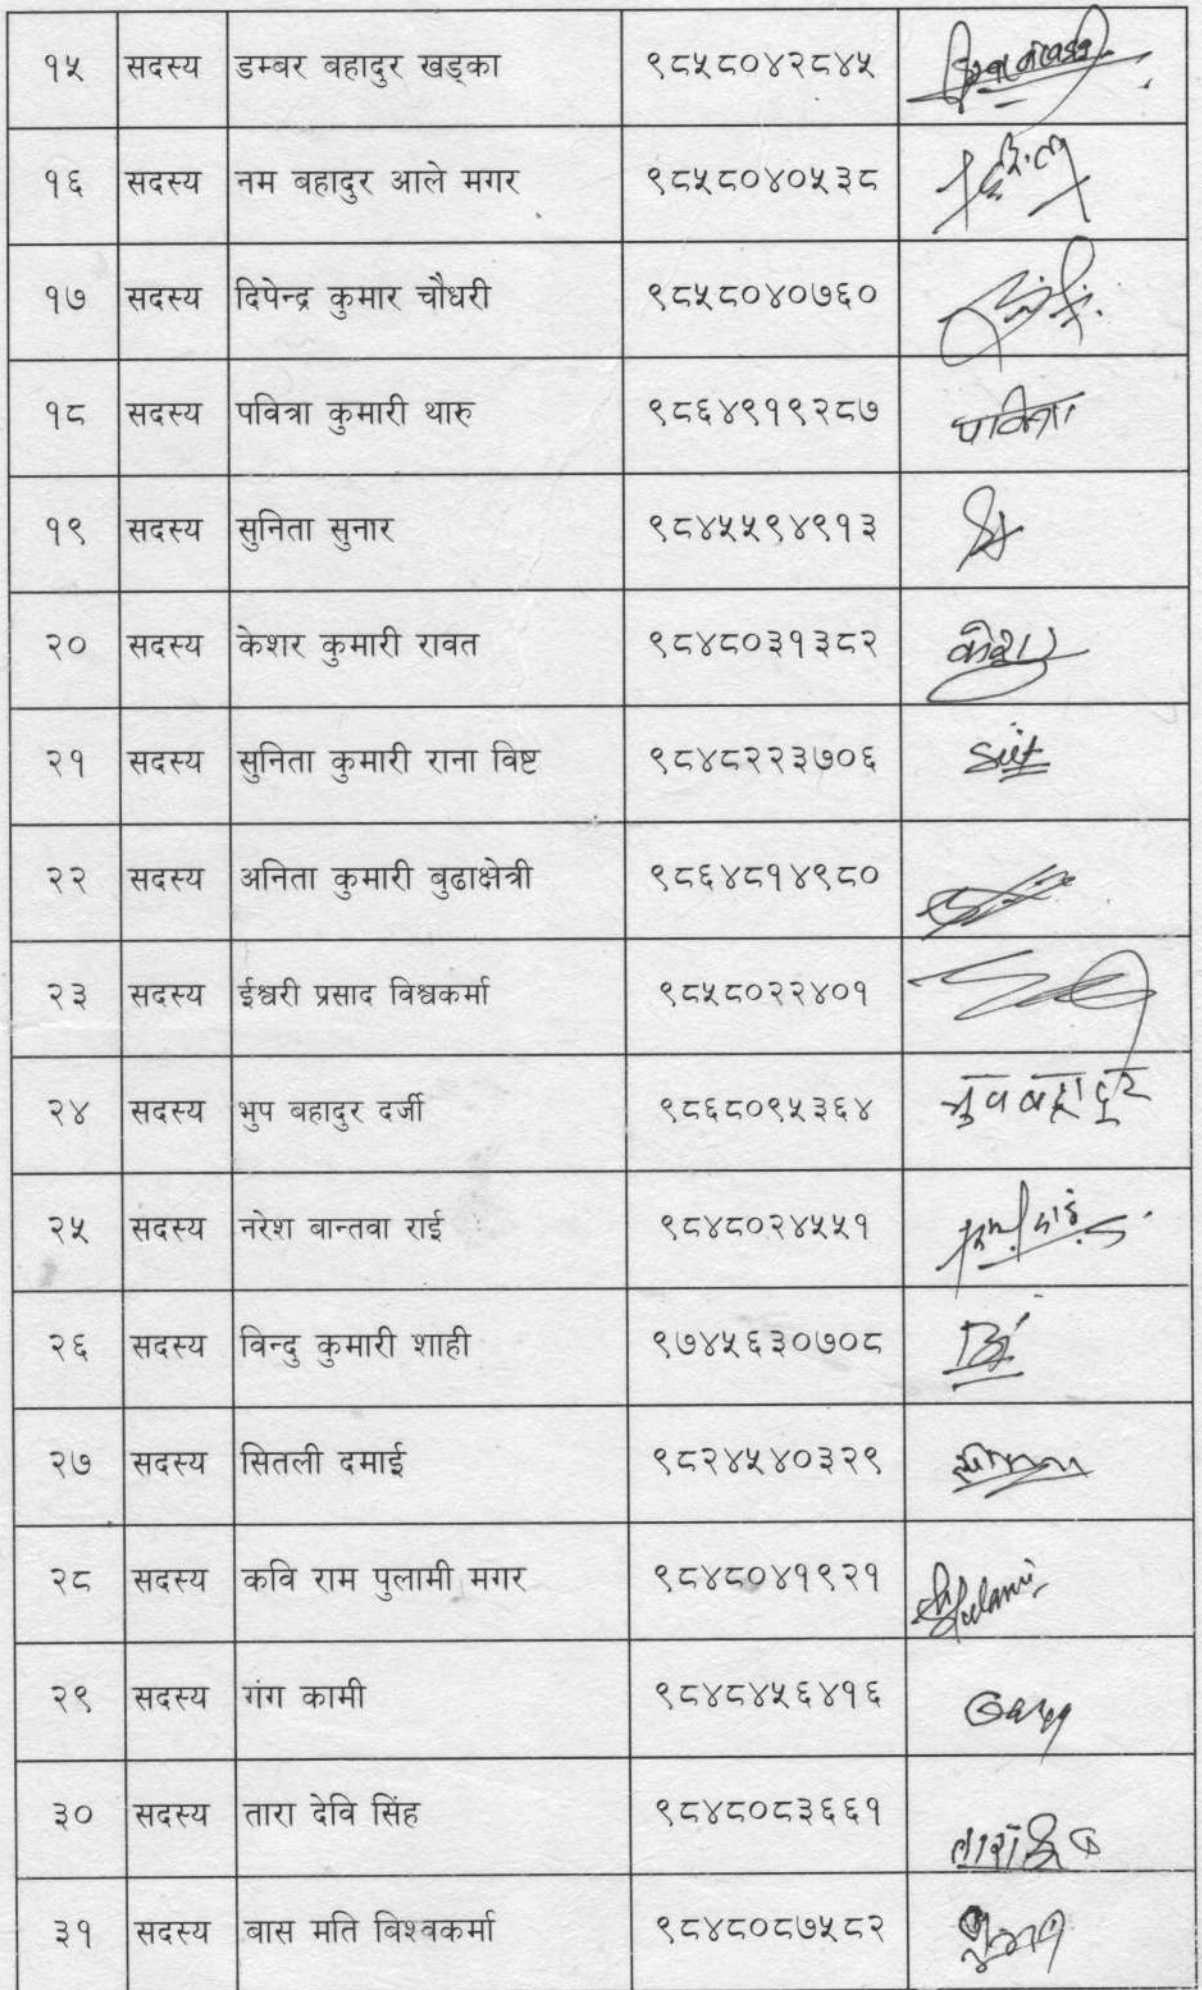 १५ सदस्य डम्बर बहादुर खड्का ९८५८०४२८४५
१६ सदस्य नम बहादुर आले मगर ९८५८०४०५३८
१७ सदस्य दिपेन्द्र कुमार चौधरी ९८५८०४०७६०
१८ सदस्य पवित्रा कुमारी थारु ९८६४९१९२८७ पवित्रा
१९ सदस्य सुनिता सुनार ९८४५५९४९१३
२० सदस्य केशर कुमारी रावत ९८४८०३१३८२ केशर
२१ सदस्य सुनिता कुमारी राना विष्ट ९८४८२२३७०६
२२ सदस्य अनिता कुमारी बुढाक्षेत्री ९८६४८१४९८०
२३ सदस्य ईश्वरी प्रसाद विश्वकर्मा ९८५८०२२४०१
२४ सदस्य भुप बहादुर दर्जी ९८६८०९५३६४
२५ सदस्य नरेश बान्तवा राई ९८४८०२४५५१
२६ सदस्य विन्दु कुमारी शाही ९७४५६३०७०८
२७ सदस्य सितली दमाई ९८२४५४०३२९
२८ सदस्य कवि राम पुलामी मगर ९८४८०४१९२१
२९ सदस्य गंग कामी ९८४८४५६४१६
३० सदस्य तारा देवि सिंह ९८४८०८३६६१
३१ सदस्य बास मति बिश्वकर्मा ९८४८०८७५८२